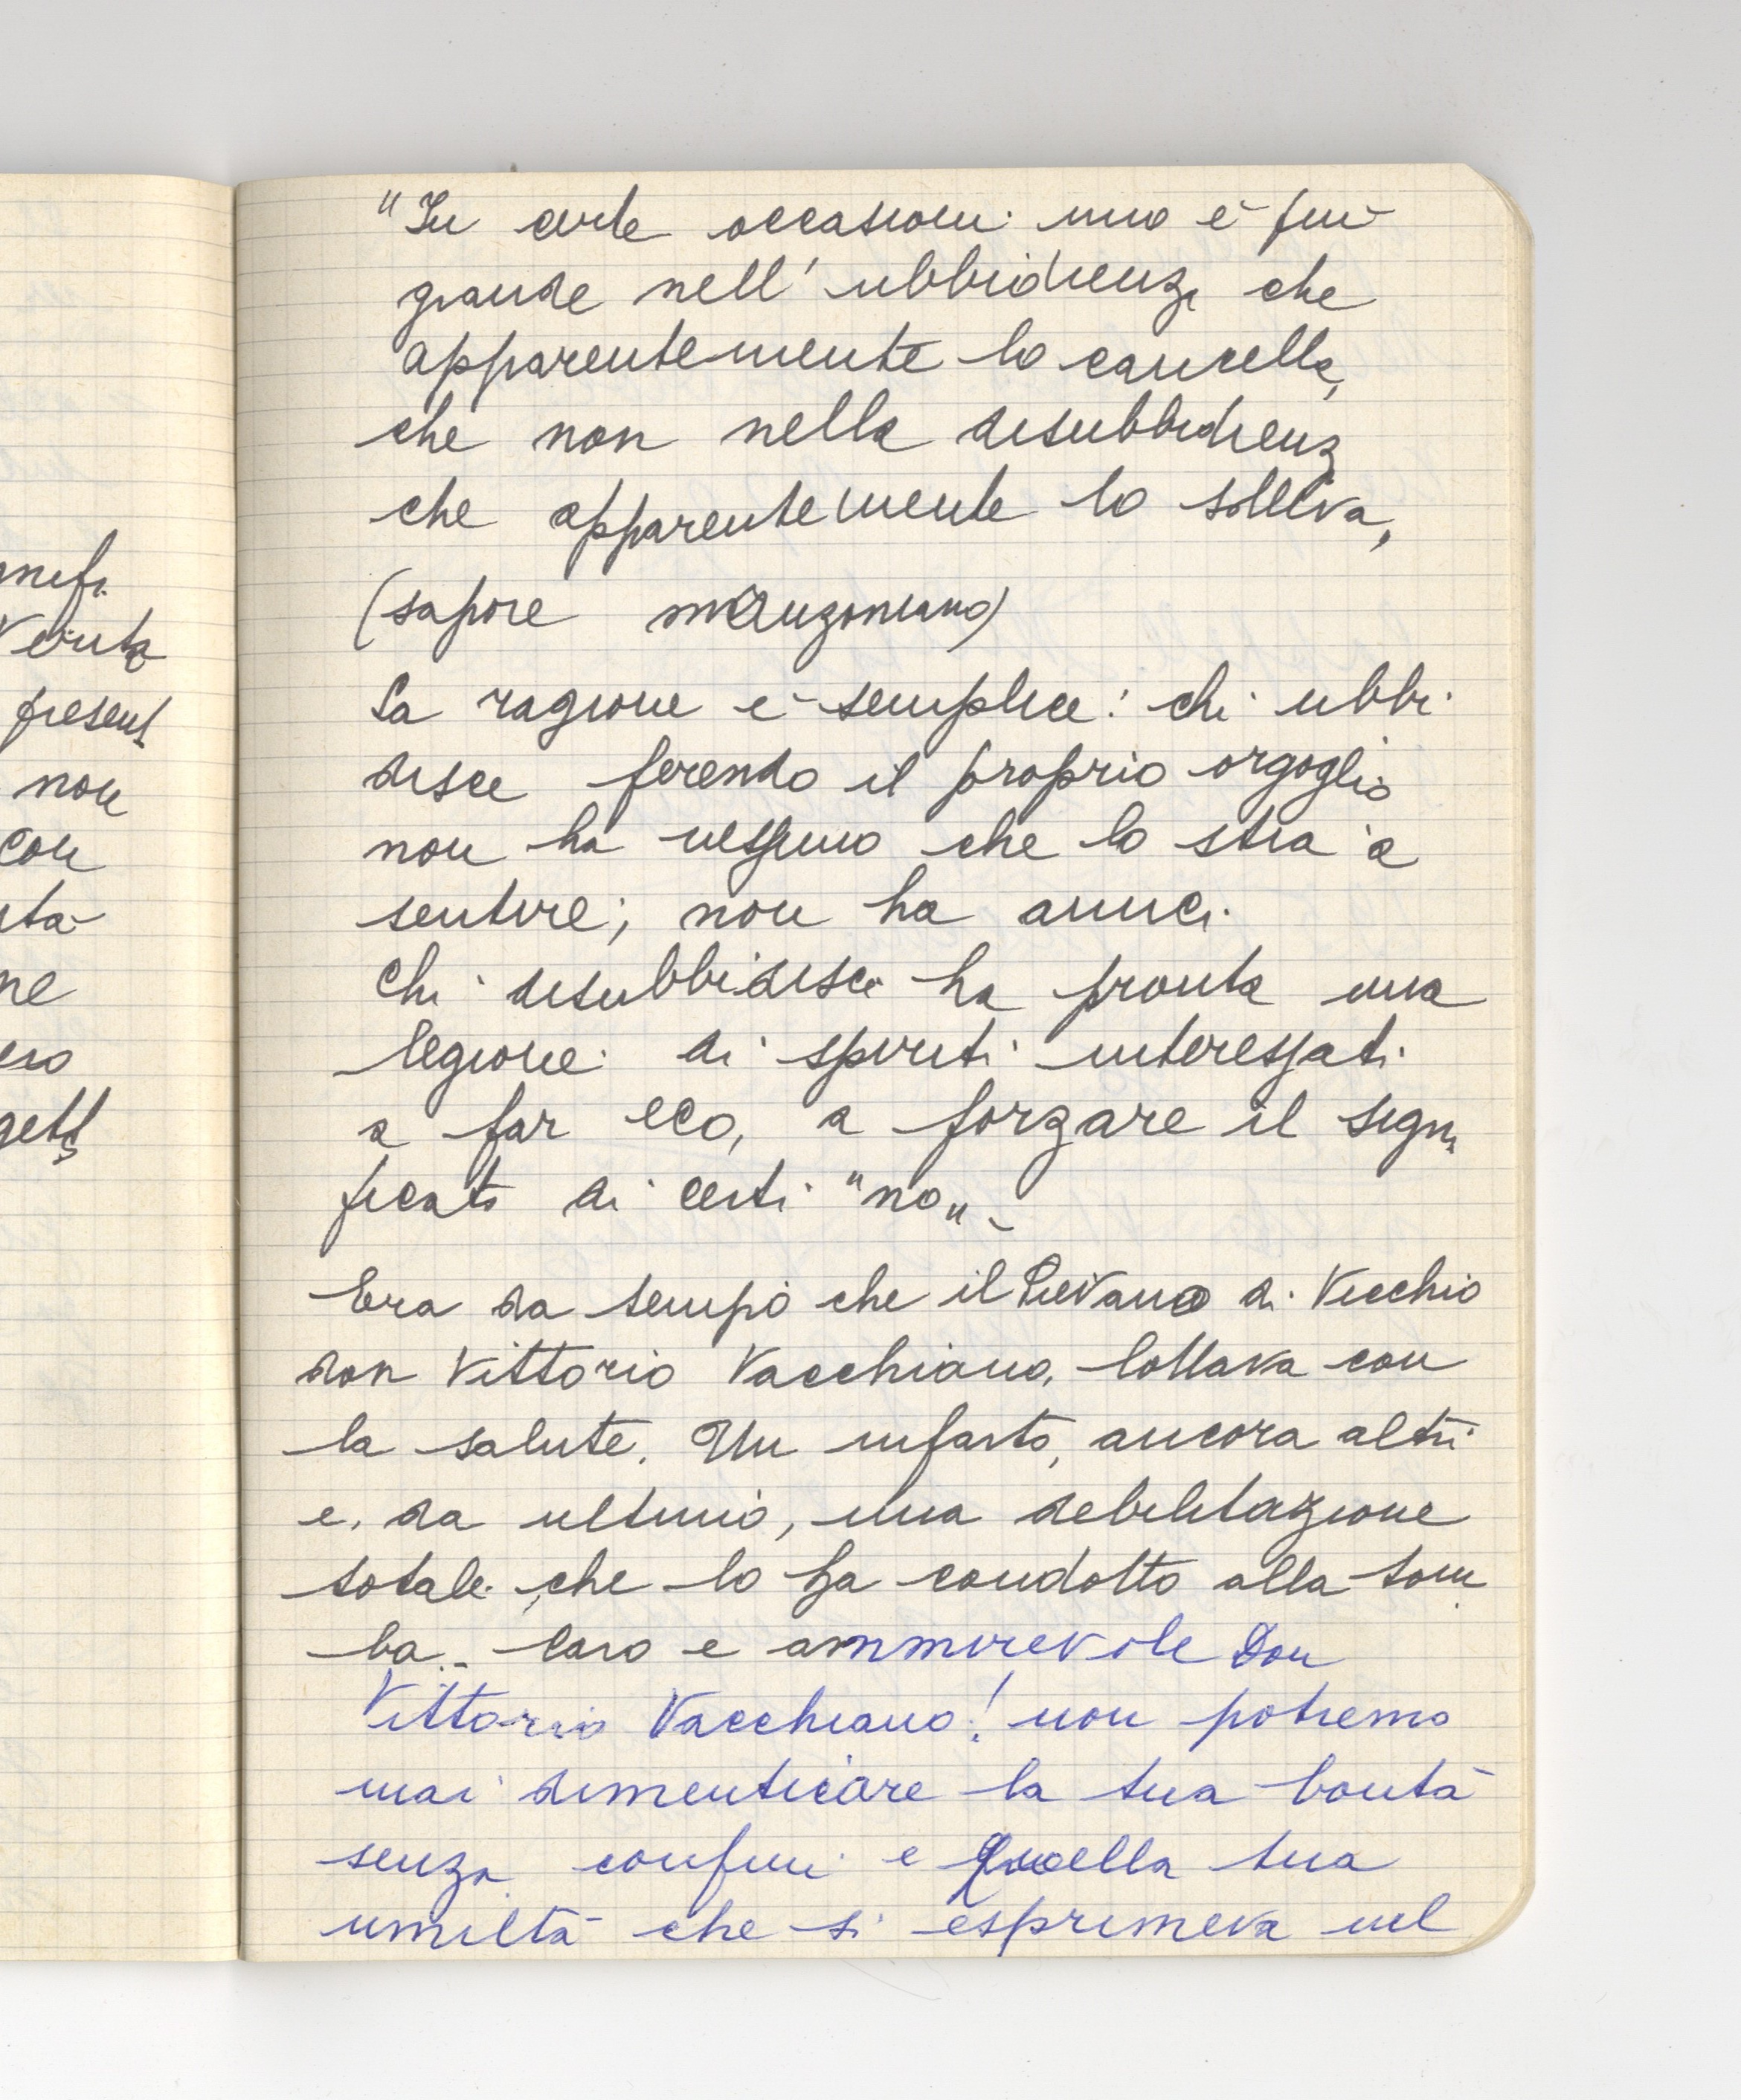 mefi
Verità
present
non
con
ità
ne
ero
gett
"In certe occasioni uno è più
grande nell'ubbidienza che
apparentemente lo cancella,
che non nella disubbidienza
che apparentemente lo solleva,
(sapore manzoniano)
La ragione è semplice: chi ubbi
disce ferendo il proprio orgoglio
non ha nessuno che lo stia a
sentire; non ha amici.
Chi disubbidisce ha pronta una
legione di spiriti interessati
a far eco, a forzare il signi
ficato di certi "no" -
Era da tempo che il Pievano di Vicchio
don Vittorio Vacchiano, lottava con
la salute. Un infarto, ancora altri
e, da ultimo, una debilitazione
totale, che lo ha condotto alla tom
ba.. Caro e ammirevole Don
Vittorio Vacchiano! non potremo
mai dimenticare la tua bontà
senza confini e quella tua
umiltà che si esprimeva nel